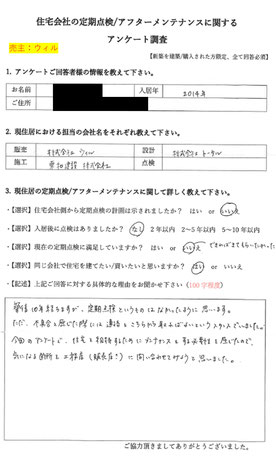 住宅会社の定期点検/アフターメンテナンスに関する
アンケート調査
売主：ウィル
【新築を建築/購入された方限定、全て回答必須】
1. アンケートご回答者様の情報を教えて下さい。
お名前 入居年 2014年
ご住所
2. 現住居における担当の会社名をそれぞれ教えて下さい。
販売 株式会社 ウィル 設計 株式会社 トータル
施工 建設 株式会社 点検
3. 現住居の定期点検/アフターメンテナンスに関して詳しく教えて下さい。
・【選択】住宅会社側から定期点検の計画は示されましたか？ はい or いいえ
・【選択】入居後に点検はありましたか？ なし 2年以内 2～5年以内 5～10年以内
・【選択】現在の定期点検に満足していますか？ はい or いいえ できればまたもらいたかった
・【選択】同じ会社で住宅を建てたい/買いたいと思いますか？ はい or いいえ
・【記述】上記ご回答に対する具体的な理由をお聞かせ下さい（100字程度）
築後10年経ちますが、定期点検というものはなかったように思います。
ただ、不具合を感じた際には連絡をこちらから取ればよいというスタンスでいました。
今回のアンケートで、住宅を維持するためにメンテナンスを要す時期を感じたので、
気になる箇所を工務店（販売店？）に問い合わせてみようと思いました。
ご協力頂きましてありがとうございました。